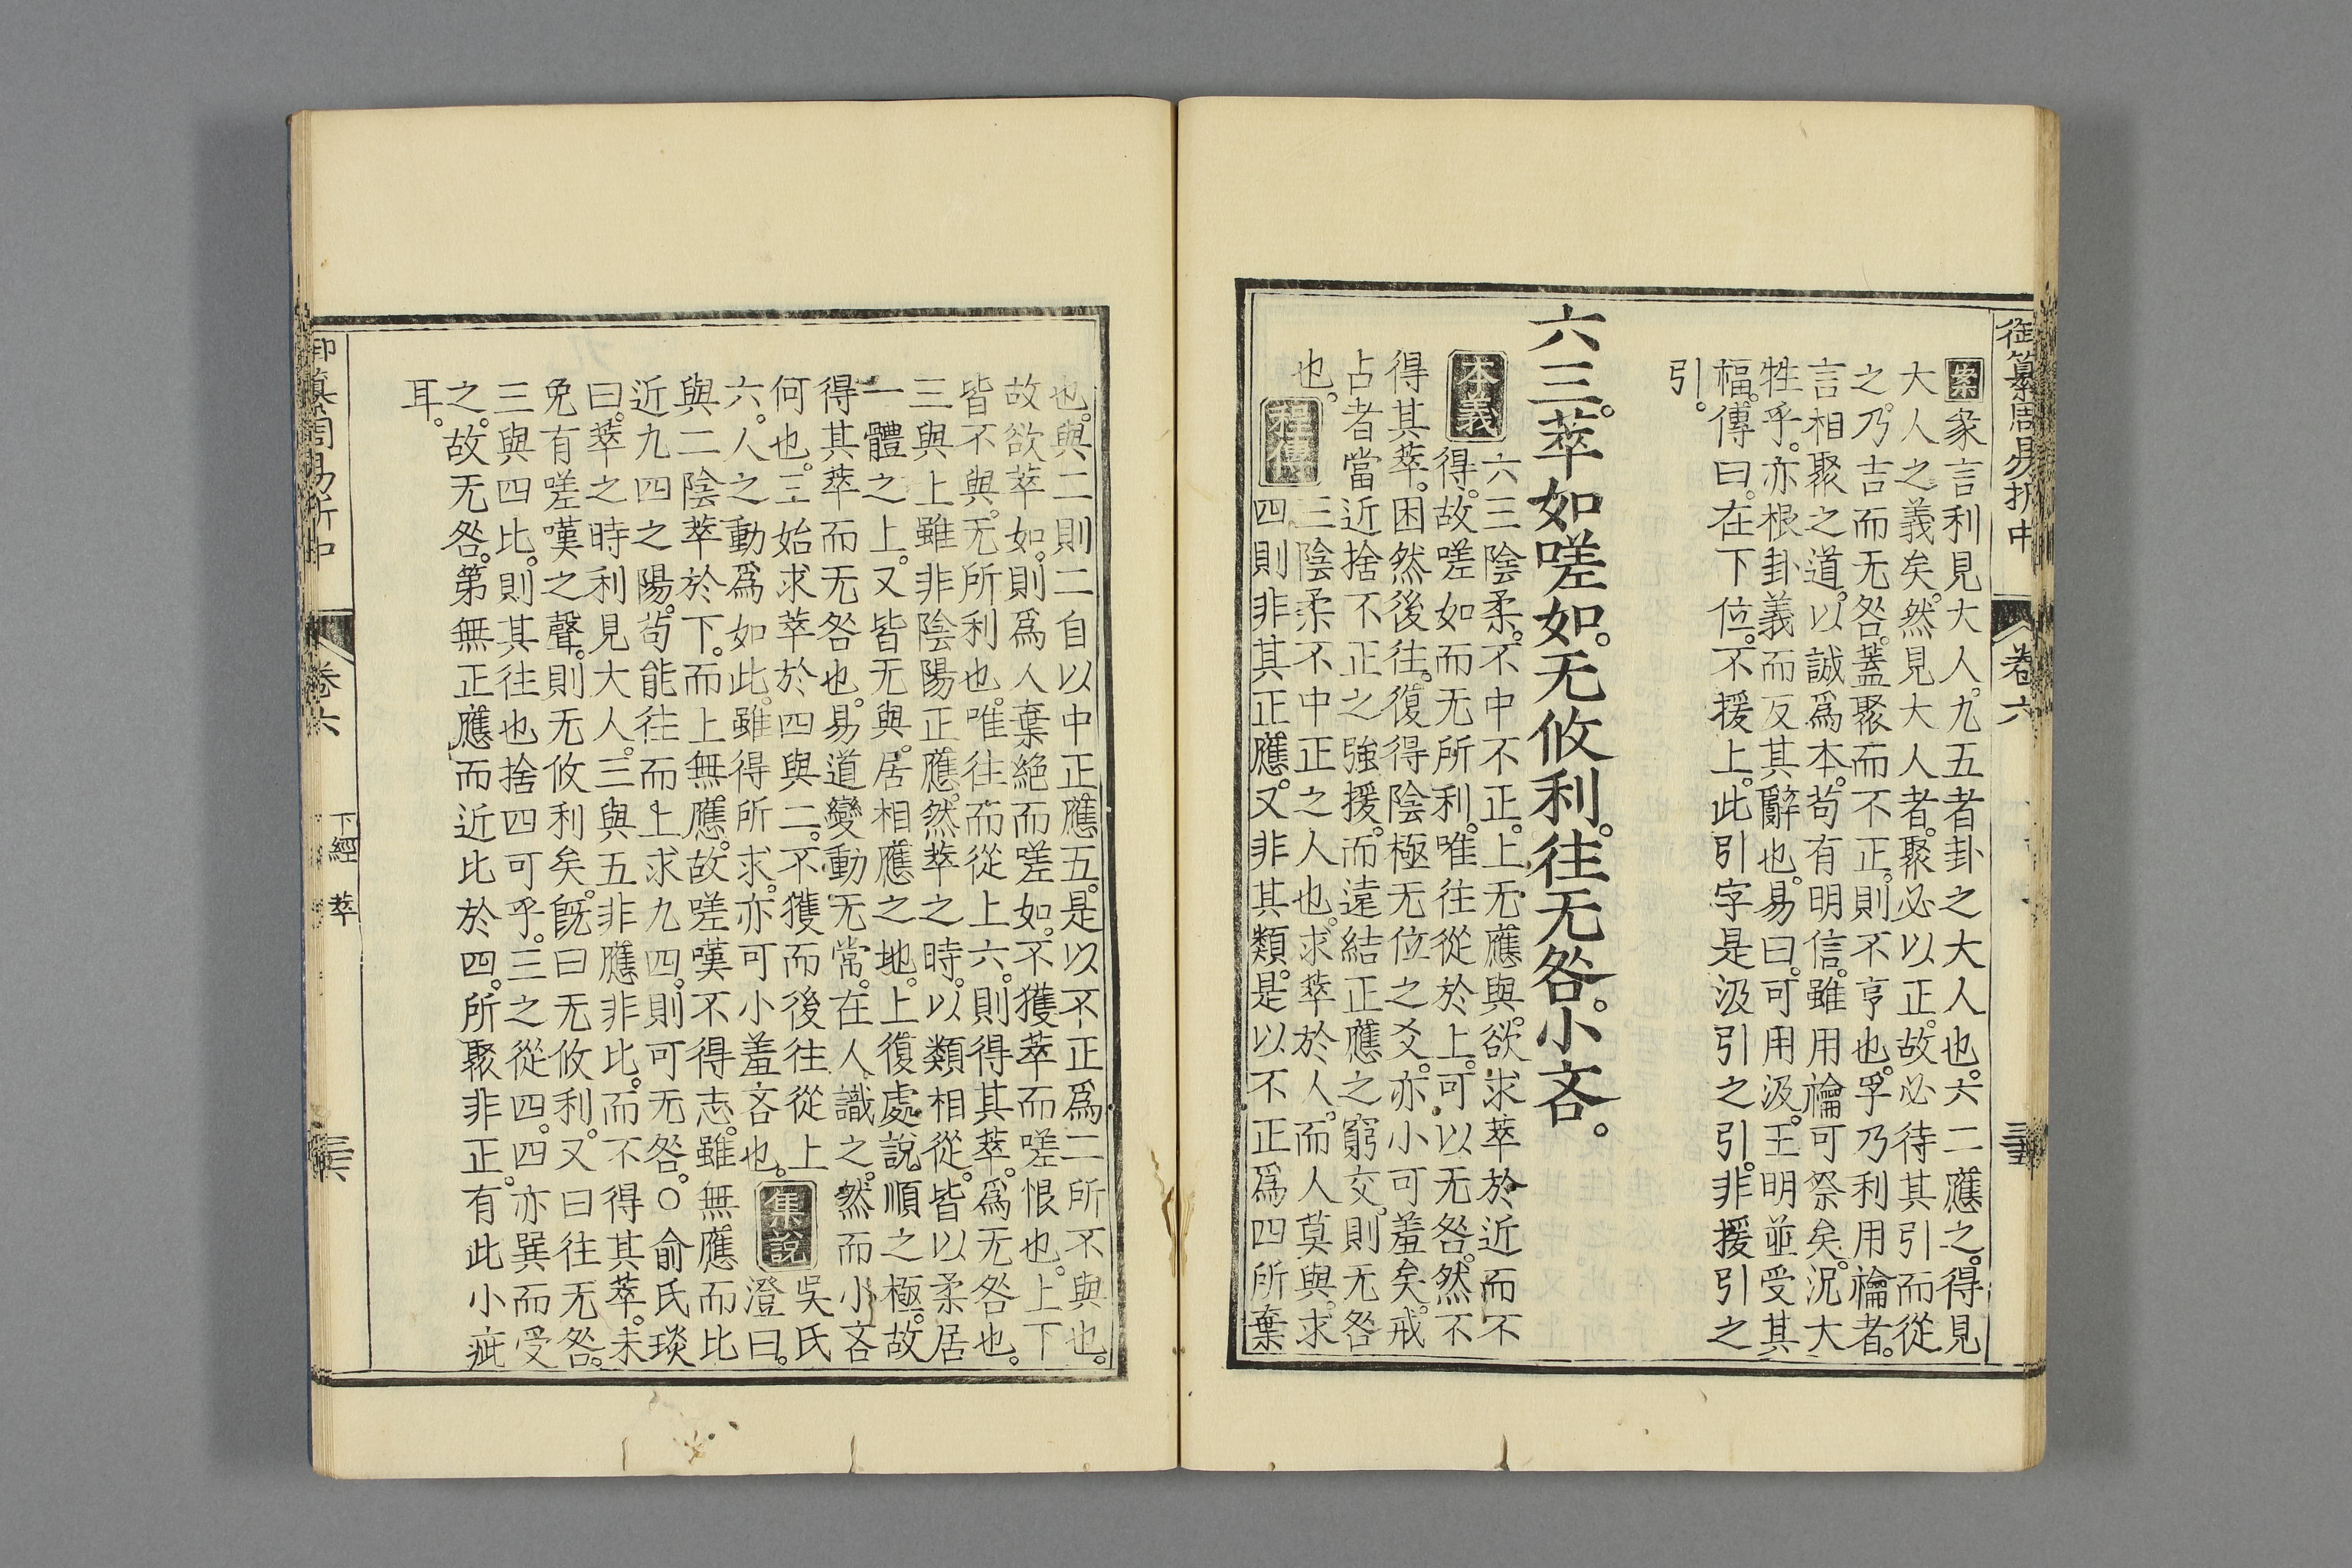 御纂周易折中
卷六
案彖言利見大人。九五者卦之大人也。六二應之。得見
大人之義矣。然見大人者。聚必以正。故必待其引而從
之。乃吉而无咎。蓋聚而不正。則不亨也。孚乃利用禴者。
言相聚之道。以誠爲本。苟有明信。雖用禴可祭矣。況大
牲乎。亦根卦義而反其辭也。易曰。可用汲。王明並受其
福。傳曰。在下位。不援上。此引字是汲引之引。非援引之
引。
六三。萃如嗟如。无攸利。往无咎。小吝。
本義 六三陰柔。不中不正。上无應與。欲求萃於近而不
得。故嗟如而无所利。唯往從於上。可以无咎。然不
得其萃。困然後往。復得陰極无位之爻。亦小可羞矣。戒
占者當近捨不正之強援。而遠結正應之窮交。則无咎
也。程傳 三陰柔不中正之人也。求萃於人。而人莫與。求
四則非其正應。又非其類。是以不正爲四所棄
也。與二則二自以中正應五。是以不正爲二所不與也。
故欲萃如。則爲人棄絶而嗟如。不獲萃而嗟恨也。上下
皆不與。无所利也。唯往而從上六。則得其萃。爲无咎也。
三與上雖非陰陽正應。然萃之時。以類相從。皆以柔居
一體之上。又皆无與。居相應之地。上復處說順之極。故
得其萃而无咎也。易道變動无常。在人識之。然而小吝
何也。三始求萃於四與二。不獲而後往從上
六。人之動爲如此。雖得所求。亦可小羞吝也。集說 吳氏
澄曰。
與二陰萃於下。而上無應。故嗟嘆不得志。雖無應而比
近九四之陽。苟能往而上求九四。則可无咎。○俞氏琰
曰。萃之時利見大人。三與五非應非比。而不得其萃。未
免有嗟嘆之聲。則无攸利矣。旣曰无攸利。又曰往无咎。
三與四比。則其往也捨四可乎。三之從四。四亦巽而受
之。故无咎。第無正應而近比於四。所聚非正。有此小疵
耳。
御纂周易折中
卷六
下經 萃